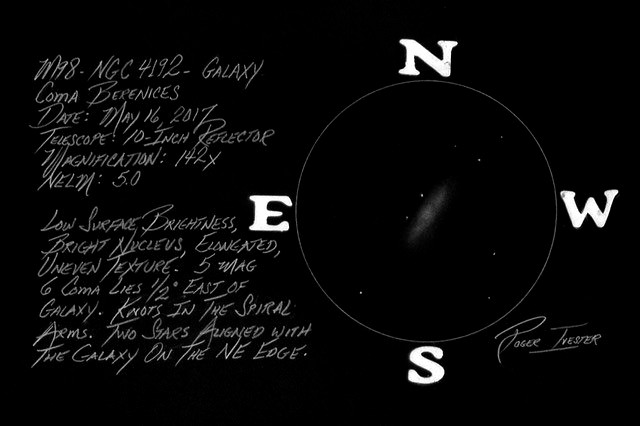 M98 - NGC 4192 - GALAXY
COMA BERENICES
DATE: MAY 16, 2017
TELESCOPE: 10-INCH REFLECTOR
MAGNIFICATION: 142X
NELM: 5.0
LOW SURFACE BRIGHTNESS,
BRIGHT NUCLEUS, ELONGATED,
UNEVEN TEXTURE. 5 MAG
6 COMA LIES 1/2° EAST OF
GALAXY. KNOTS IN THE SPIRAL
ARMS. TWO STARS ALIGNED WITH
THE GALAXY ON THE NE EDGE.
N
E
W
S
ROGER IVESTER